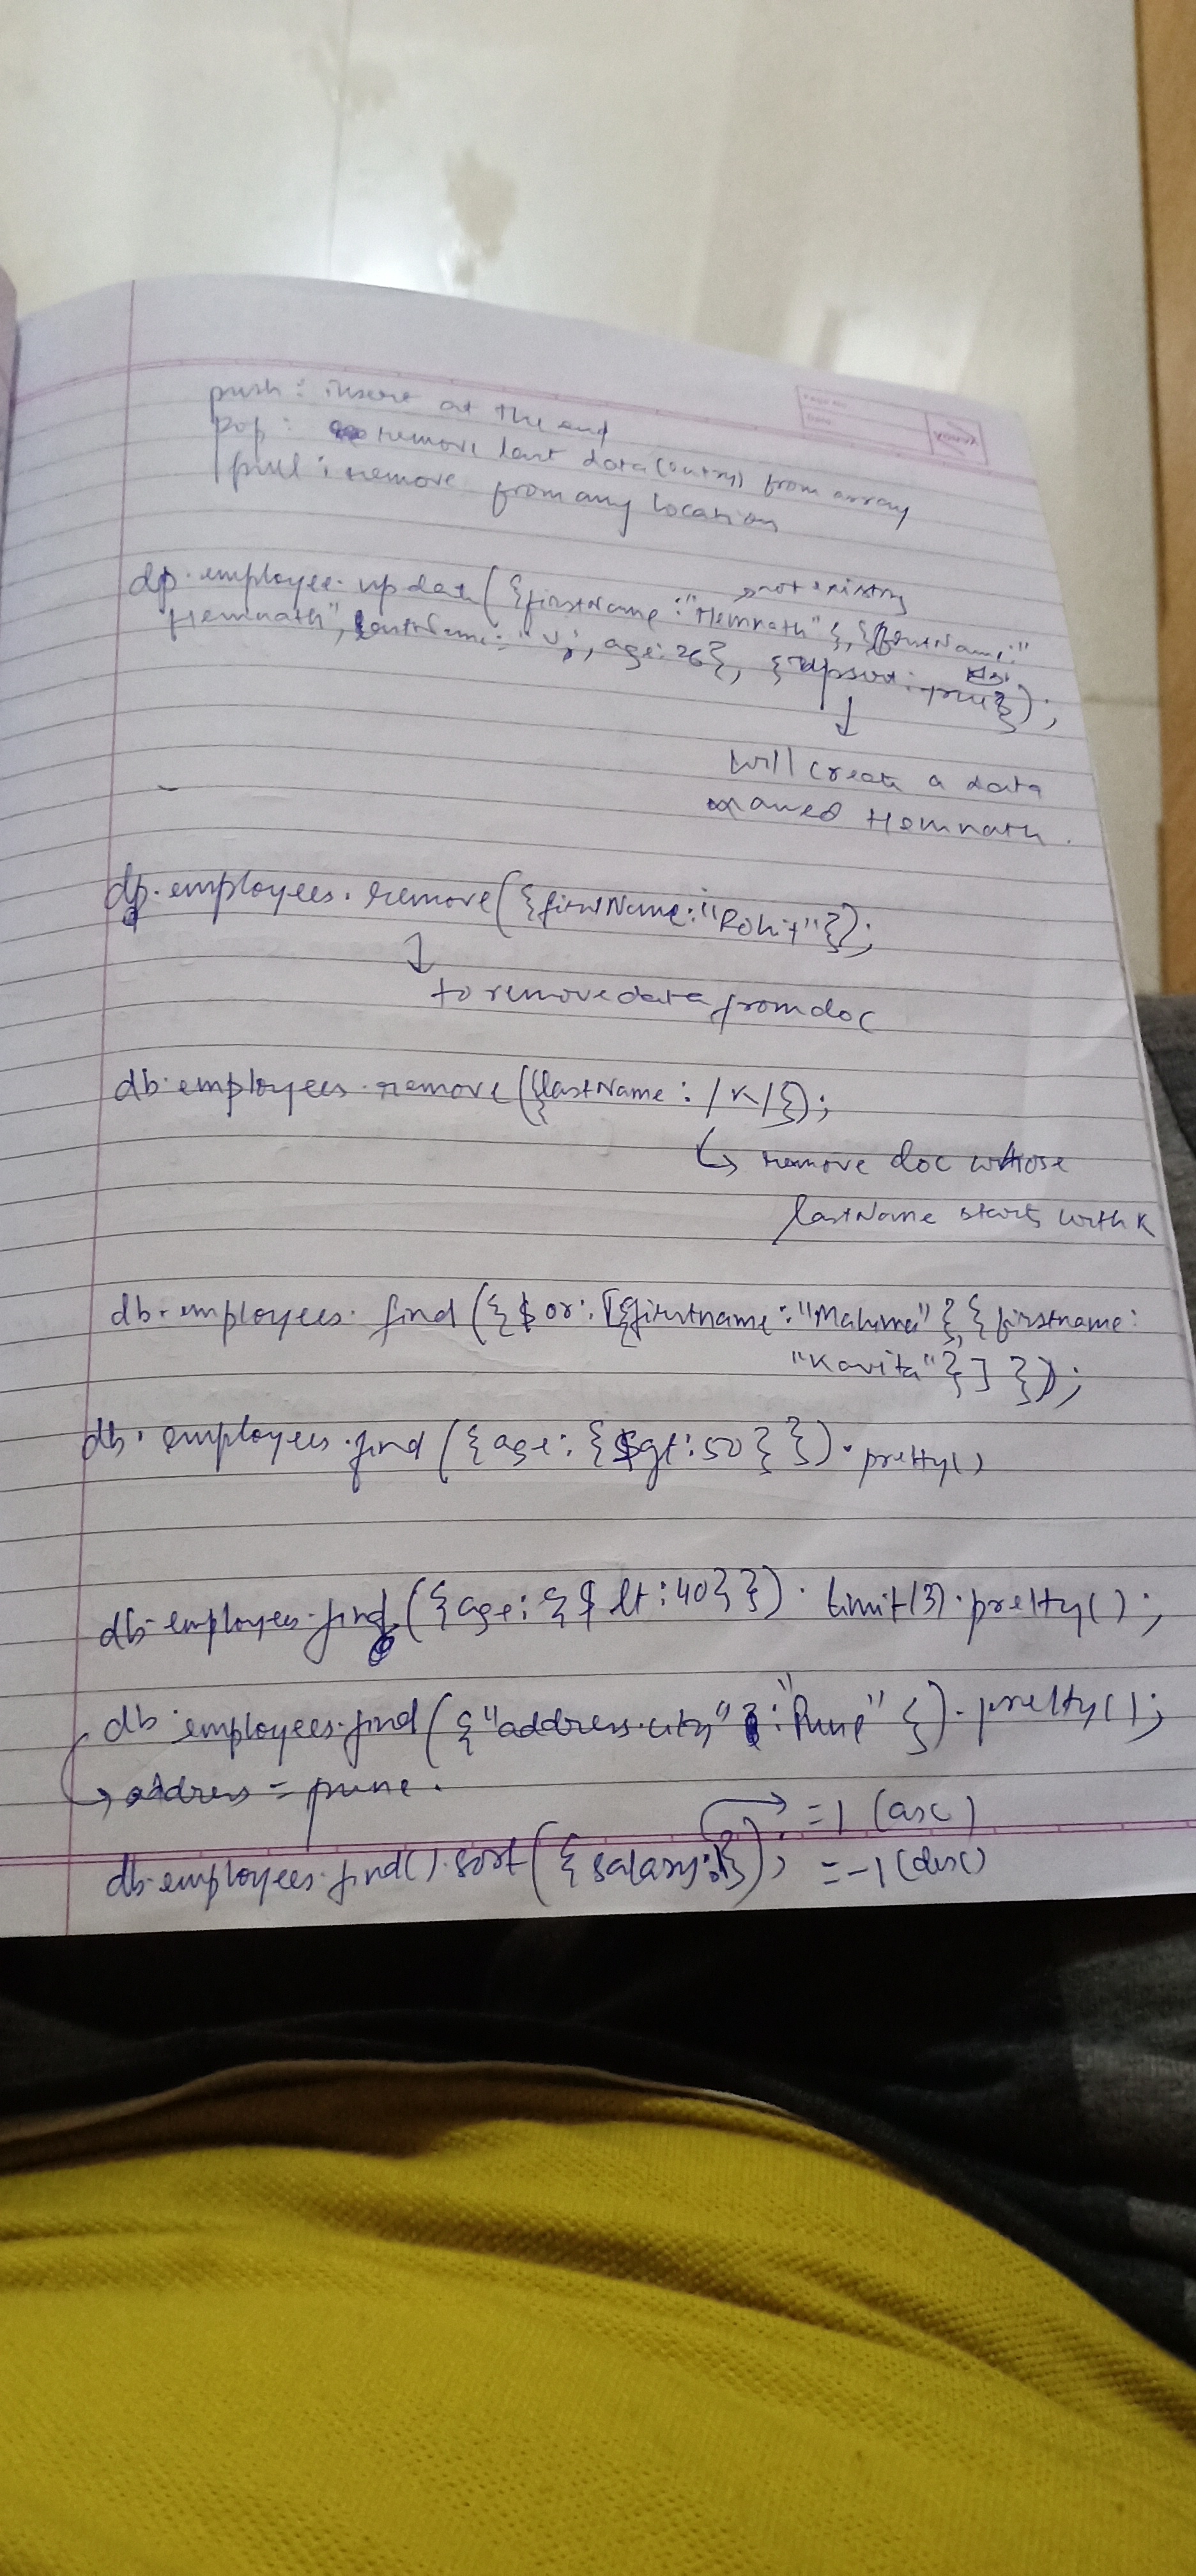 push : insert at the end
pop : remove last data (entry) from array
pull : remove from any location
not existing
db.employee.update({firstName:"Hemnath"},{firstName:"
Hemnath", lastName: "V", age:26}, {upsert:true});
will create a data
named Hemnath.
db.employees.remove({firstName:"Rohit"});
to remove data from doc
db.employees.remove({lastName: /K/});
remove doc whose
lastName starts with K
db.employees.find({$or:[{firstname:"Mahima"},{firstname:
"Kavita"}]});
db.employees.find({age:{$gt:50}}).pretty()
db.employees.find({age:{$lt:40}}).limit(3).pretty();
db.employees.find({"address.city":"Pune"}).pretty();
address = pune.
=1 (asc)
db.employees.find().sort({salary:1}); =-1 (desc)